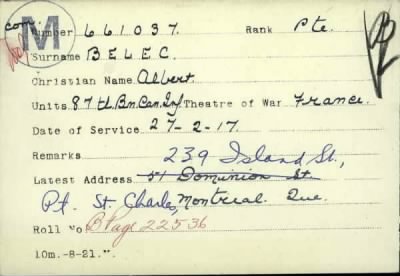 com. M Number 661037. Rank Pte.
Surname BELEC.
Christian Name Albert.
Units 87th Bn. Can. Inf Theatre of War France.
Date of Service 27-2-17.
Remarks 239 Island St.,
Latest Address 51 Dominion St.
Pt. St. Charles, Montreal Que.
Roll No B Page 22536
10m.-8-21.".